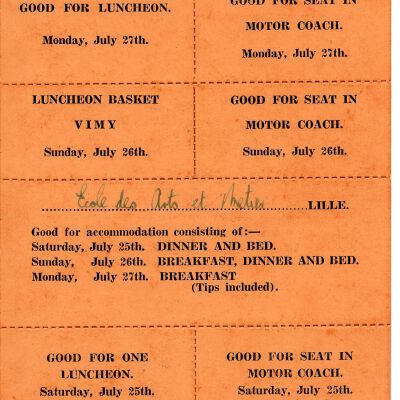 GOOD FOR LUNCHEON.
Monday, July 27th.
GOOD FOR SEAT IN
MOTOR COACH.
Monday, July 27th.
LUNCHEON BASKET
VIMY
Sunday, July 26th.
GOOD FOR SEAT IN
MOTOR COACH.
Sunday, July 26th.
Ecole des Arts et Metier LILLE.
Good for accommodation consisting of:—
Saturday, July 25th. DINNER AND BED.
Sunday, July 26th. BREAKFAST, DINNER AND BED.
Monday, July 27th. BREAKFAST
(Tips included).
GOOD FOR ONE
LUNCHEON.
Saturday, July 25th.
GOOD FOR SEAT IN
MOTOR COACH.
Saturday, July 25th.